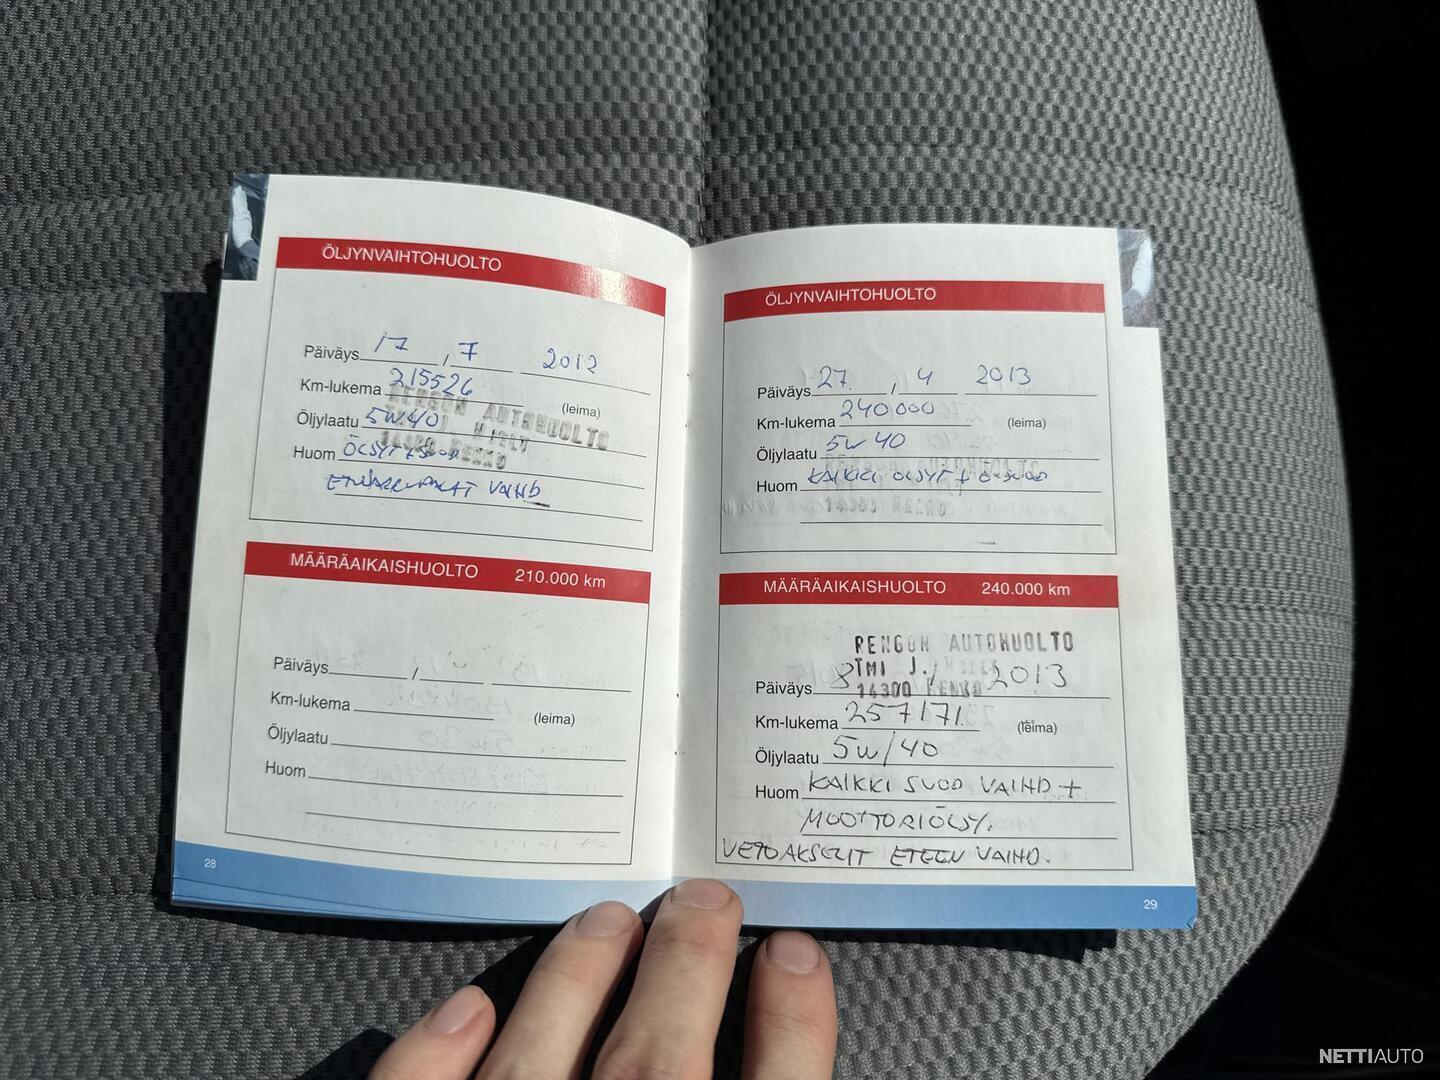 ÖLJYNVAIHTOHUOLTO
Päiväys 17 / 7 2012
Km-lukema 215526 (leima)
RENGON AUTOHUOLTO
Öljylaatu 5W40
14300 RENKO
Huom
VAIHD
MÄÄRÄAIKAISHUOLTO 210.000 km
Päiväys / 
Km-lukema (leima)
Öljylaatu
Huom
28
ÖLJYNVAIHTOHUOLTO
Päiväys 27 / 4 2013
Km-lukema 240 000 (leima)
Öljylaatu 5W 40
Huom KAIKKI ÖLSYT +
MÄÄRÄAIKAISHUOLTO 240.000 km
RENGON AUTOHUOLTO
TMI J.
14300 RENKO
Päiväys 8 / 2013
Km-lukema 257171 (leima)
Öljylaatu 5W/40
Huom KAIKKI SUOD VAIHD +
MOOTTORIÖLSY.
VETOAKSELIT ETEEN VAIHD.
29
NETTIAUTO